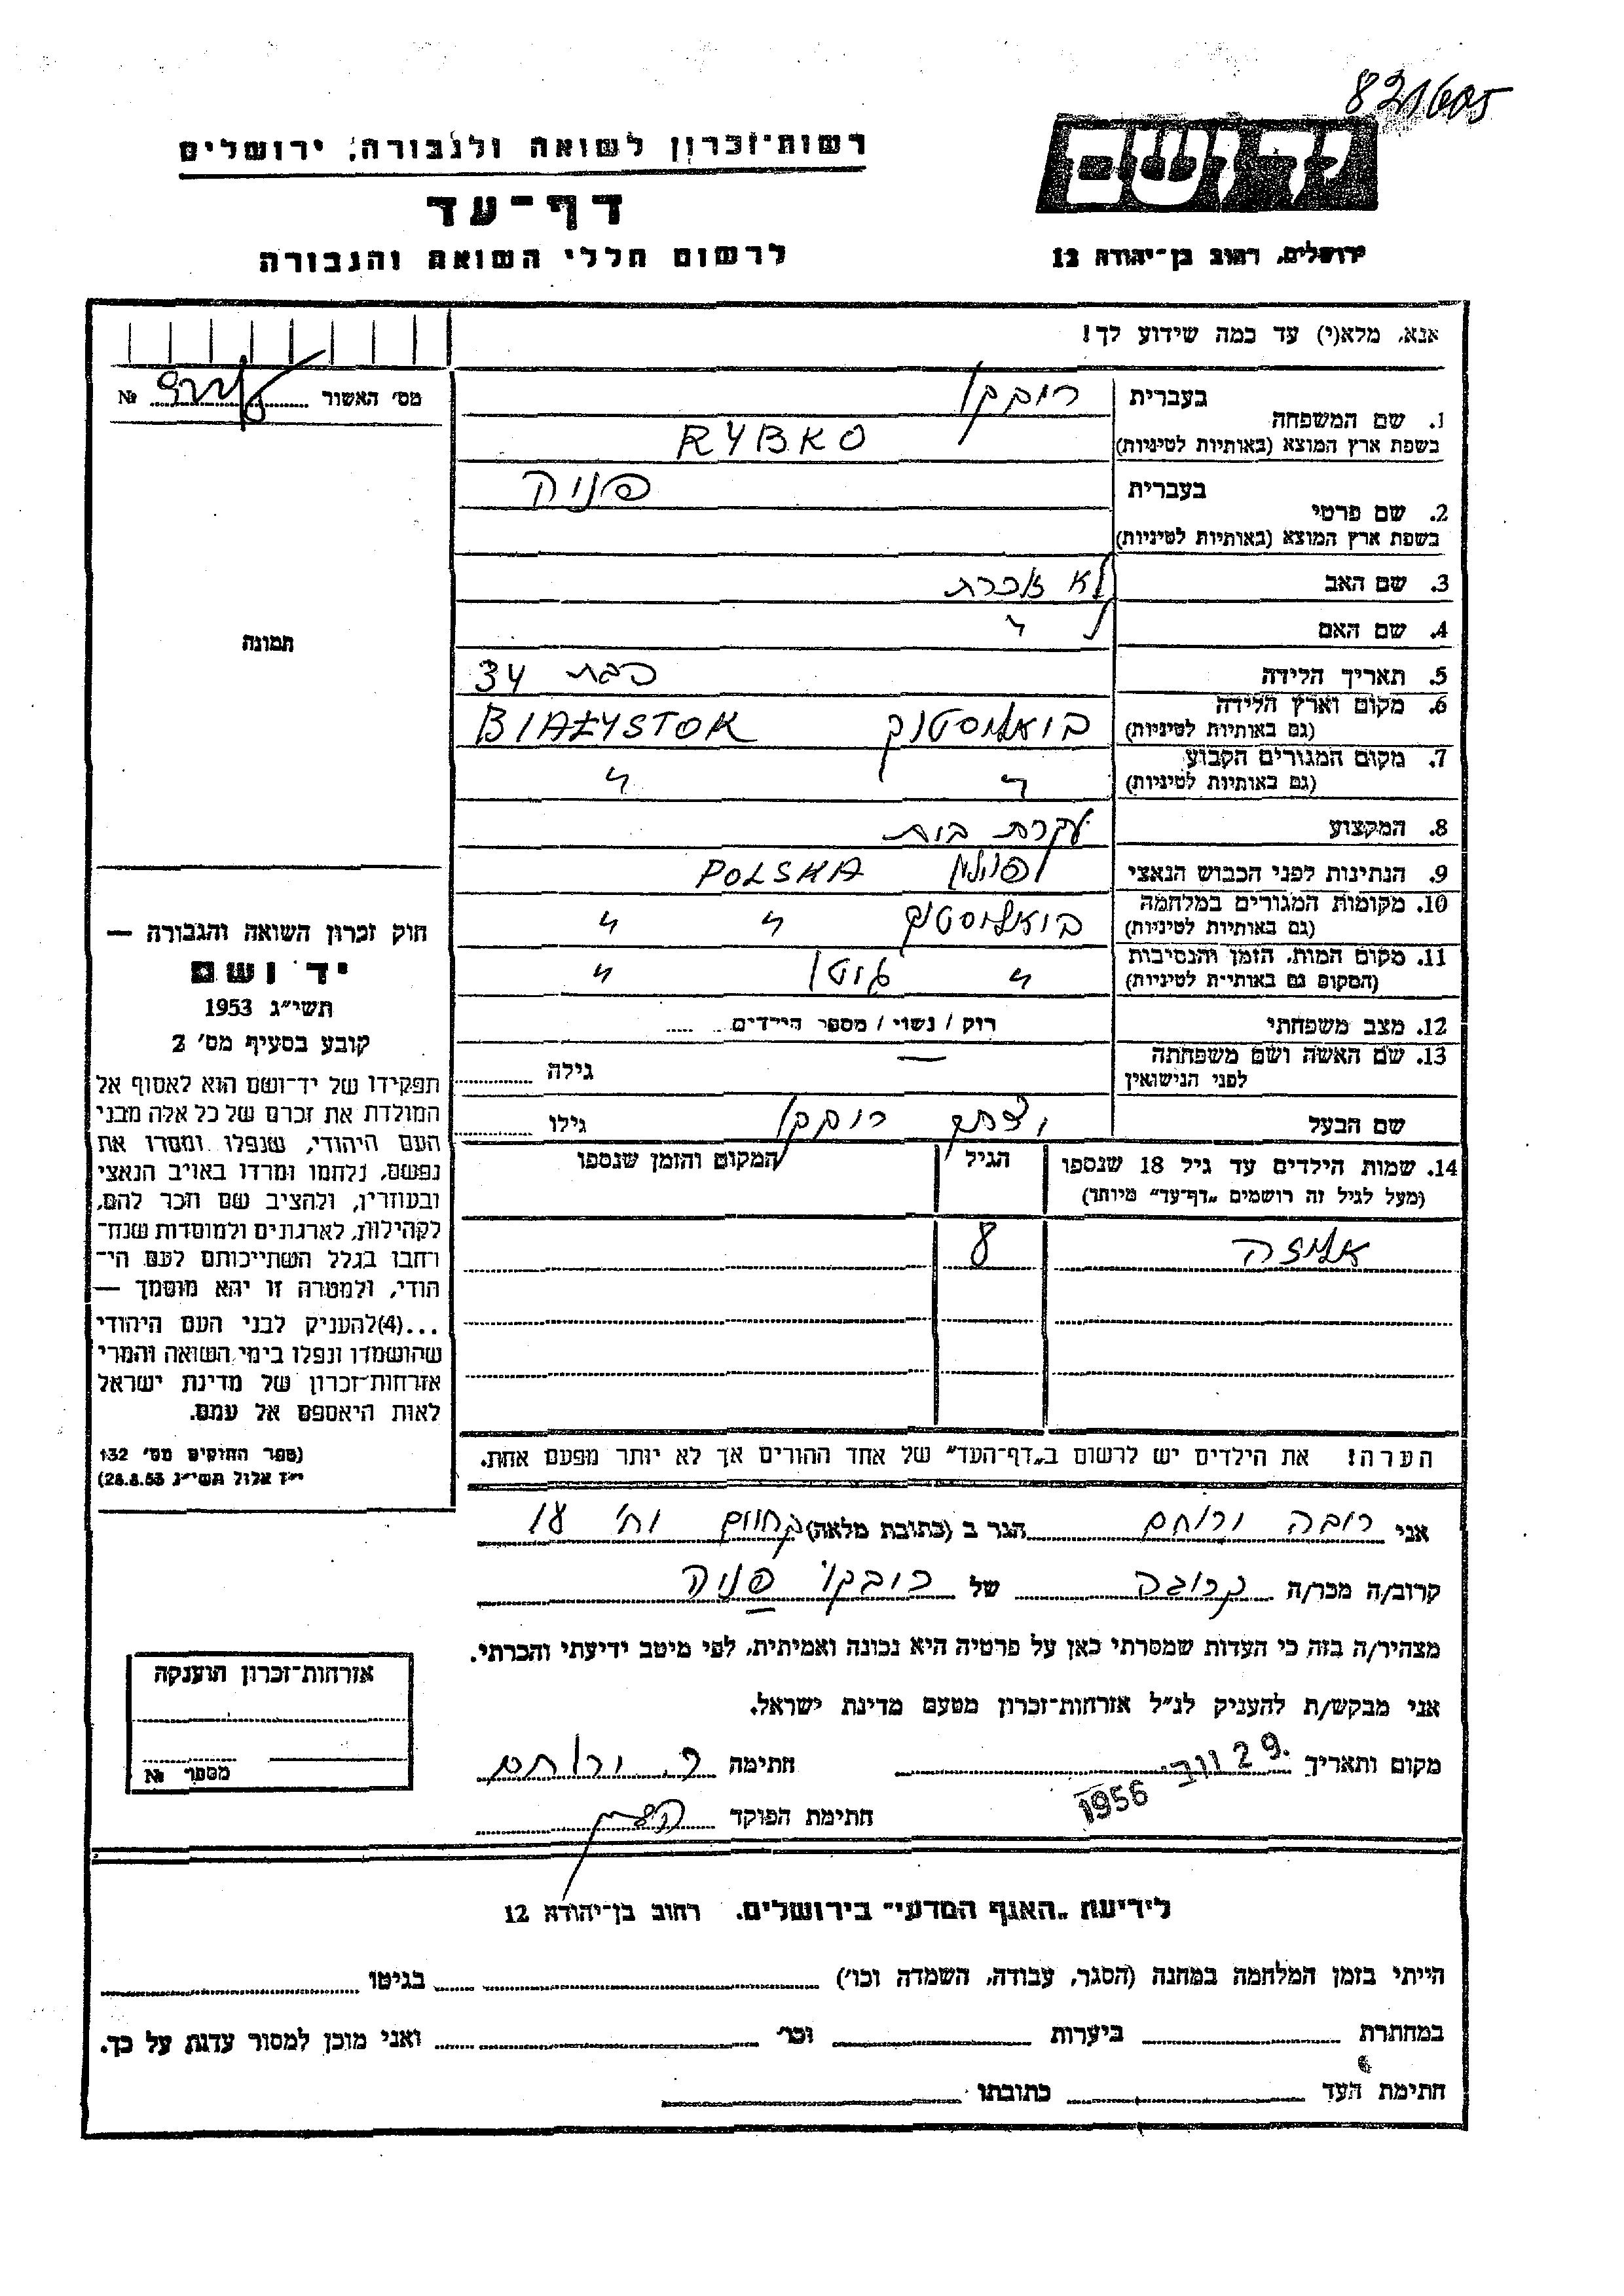 821605
יד ושם
רשות-זכרון לשואה ולגבורה, ירושלים
דף-עד
לרשום חללי השואה והגבורה
ירושלים, רחוב בן-יהודה 12
אנא, מלא(י) עד כמה שידוע לך!
מס' האשור № 
1. שם המשפחה בעברית ריבקו
בשפת ארץ המוצא (באותיות לטיניות) RYBKO
2. שם פרטי בעברית פניה
בשפת ארץ המוצא (באותיות לטיניות)
3. שם האב לא זוכרת
4. שם האם ל "
5. תאריך הלידה כבת 34
6. מקום וארץ הלידה (גם באותיות לטיניות) ביאליסטוק BIAŁYSTOK
7. מקום המגורים הקבוע (גם באותיות לטיניות) " "
8. המקצוע עקרת בית
9. הנתינות לפני הכבוש הנאצי פולין POLSKA
10. מקומות המגורים במלחמה (גם באותיות לטיניות) ביאליסטוק " "
11. מקום המות, הזמן והנסיבות (המקום גם באותיות לטיניות) " גיטו "
12. מצב משפחתי רוק / נשוי / מספר הילדים
13. שם האשה ושם משפחתה לפני הנישואין — גילה
שם הבעל יצחק ריבקו גילו
14. שמות הילדים עד גיל 18 שנספו (מעל לגיל זה רושמים „דף-עד” מיוחד) הגיל המקום והזמן שנספו
אליזה 8
הערה: את הילדים יש לרשום ב„דף-העד” של אחד ההורים אך לא יותר מפעם אחת.
תמונה
חוק זכרון השואה והגבורה —
יד ושם
תשי"ג 1953
קובע בסעיף מס' 2
תפקידו של יד-ושם הוא לאסוף אל
המולדת את זכרם של כל אלה מבני
העם היהודי, שנפלו ומסרו את
נפשם, נלחמו ומרדו באויב הנאצי
ובעוזריו, ולהציב שם וזכר להם,
לקהילות, לארגונים ולמוסדות שנח-
רבו בגלל השתייכותם לעם הי-
הודי, ולמטרה זו יהא מוסמך —
...(4)להעניק לבני העם היהודי
שהושמדו ונפלו בימי השואה והמרי
אזרחות-זכרון של מדינת ישראל
לאות היאספם אל עמם.
(ספר החוקים מס' 132
י"ז אלול תשי"ג 28.8.53)
אני ריבה ירוחם הגר ב (כתובת מלאה)
קרוב/ה מכר/ה קרובה של ריבקו פניה
מצהיר/ה בזה כי העדות שמסרתי כאן על פרטיה היא נכונה ואמיתית, לפי מיטב ידיעתי והכרתי.
אני מבקש/ת להעניק לנ"ל אזרחות-זכרון מטעם מדינת ישראל.
מקום ותאריך 29 נוב. 1956 חתימה ר. ירוחם
חתימת הפוקד
אזרחות-זכרון הוענקה
מספר №
לידיעת „האגף המדעי” בירושלים, רחוב בן-יהודה 12
הייתי בזמן המלחמה במחנה (הסגר, עבודה, השמדה וכו') בגיטו
במחתרת ביערות וכו' ואני מוכן למסור עדות על כך.
חתימת העד כתובתו